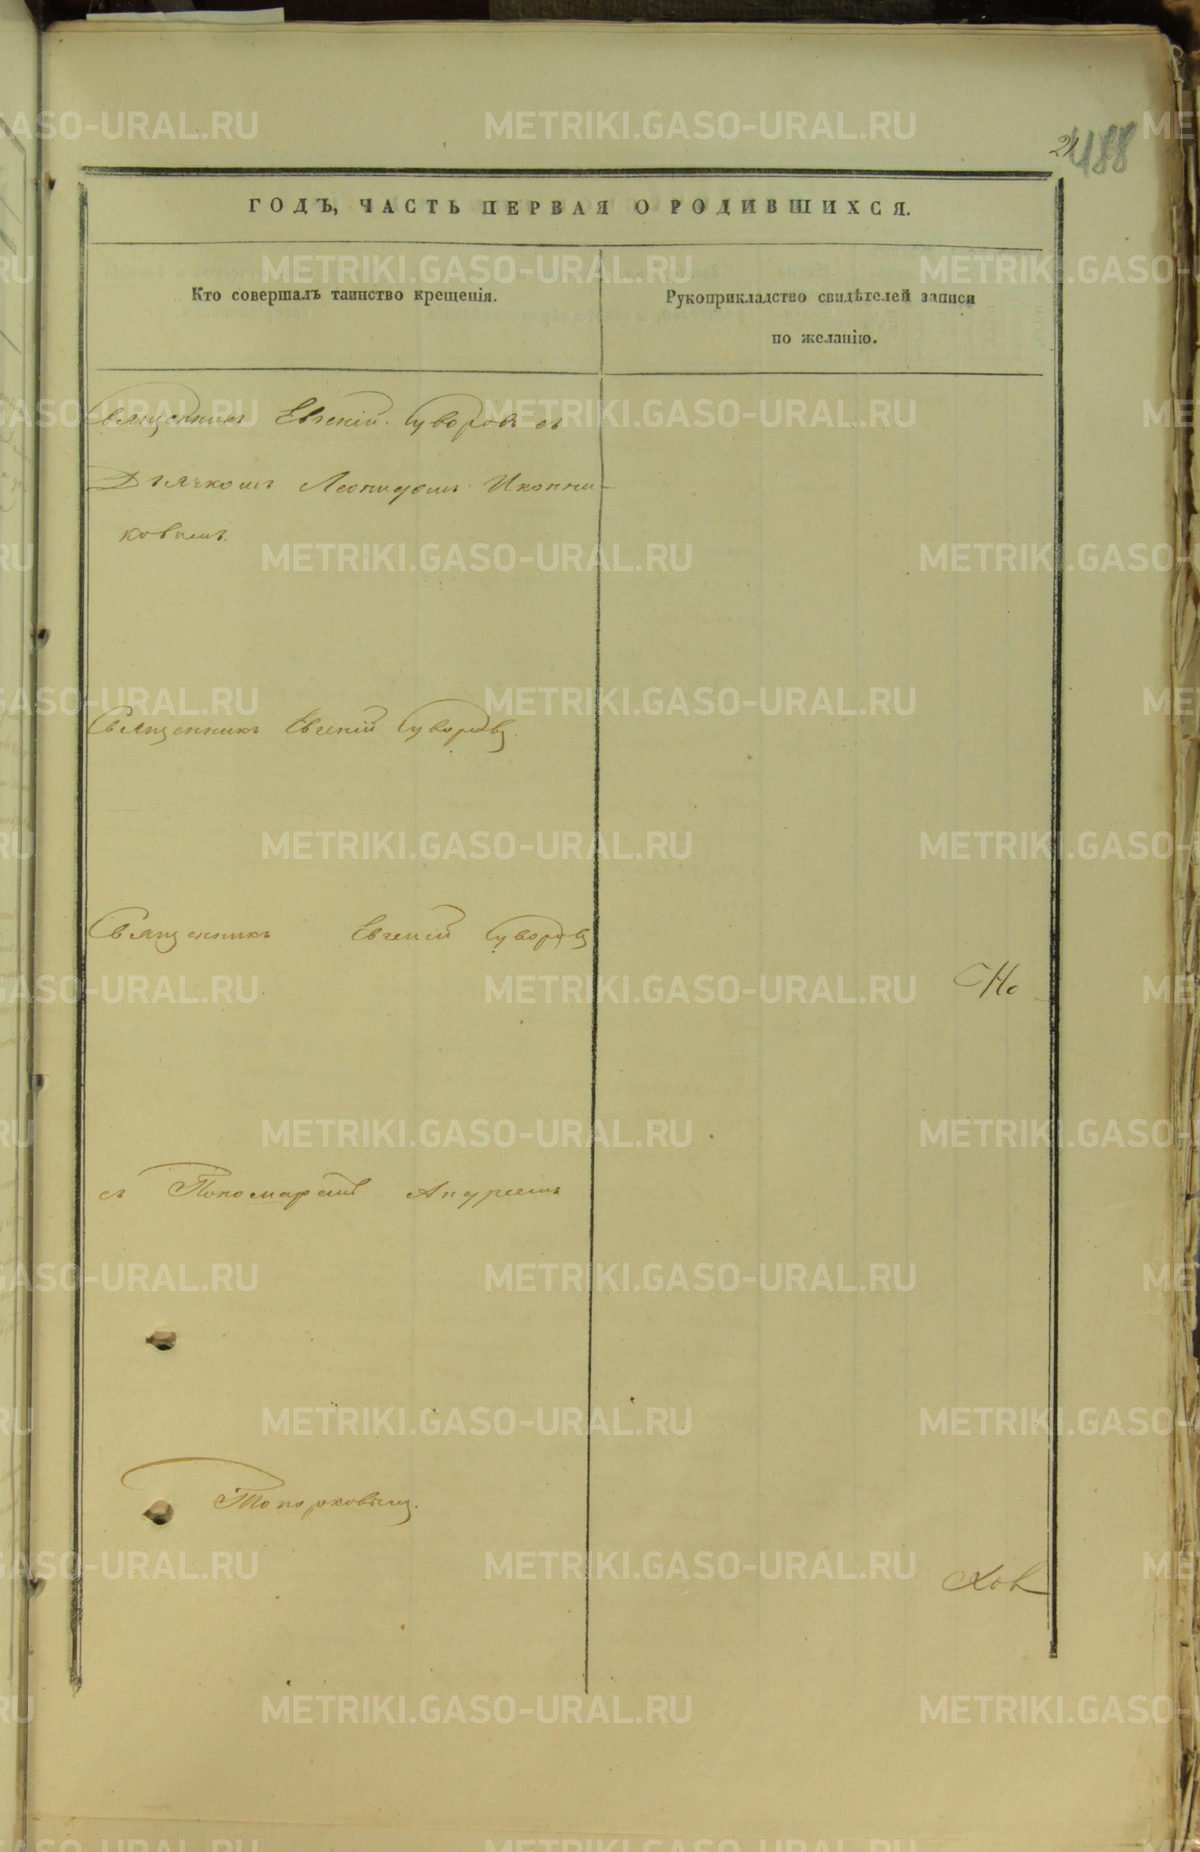 21
488
ГОДЪ, ЧАСТЬ ПЕРВАЯ О РОДИВШИХСЯ.
Кто совершалъ таинство крещенія.
Рукоприкладство свидѣтелей записи
по желанію.
Священникъ Евгеній Суворовъ съ
Дьячкомъ Леонидомъ Иконни-
ковымъ.
Священникъ Евгеній Суворовъ.
Священникъ Евгеній Суворовъ
Но
съ Пономаремъ Андреемъ
Топорковымъ.
ков
METRIKI.GASO-URAL.RU